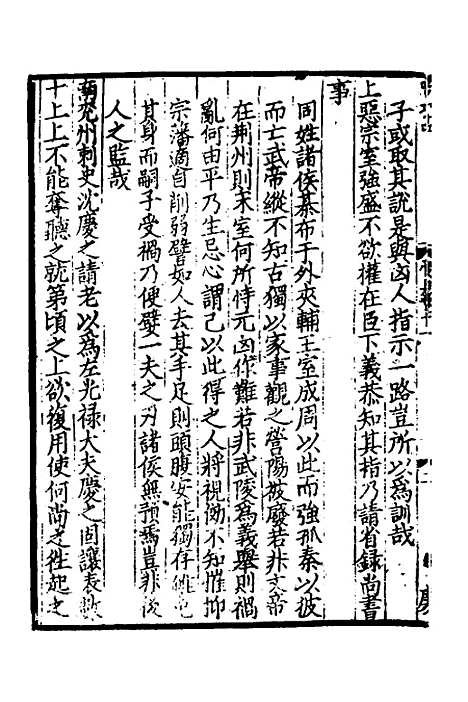 子或取其說是與凶人指示一路豈所以為訓哉
上惡宗室強盛不欲權在臣下義恭知其指乃請省録尚書
事
同姓諸侯棊布于外夾輔王室成周以此而強孤秦以彼
而亡武帝縱不知古獨以家事觀之營陽被廢若非文帝
在荆州則宋室何所恃元凶作難若非武陵為義舉則禍
亂何由平乃生忌心謂己以此得之人將視傚不知摧抑
宗藩適自削弱譬如人去其手足則頭腹安能獨存
其身而嗣子受禍乃便嬖一夫之力諸侯無預焉豈非後
人之監哉
南兖州刺史沈慶之請老以為左光禄大夫慶之固讓表數
十上上不能奪聽之就第頃之上欲復用使何尚之往起之